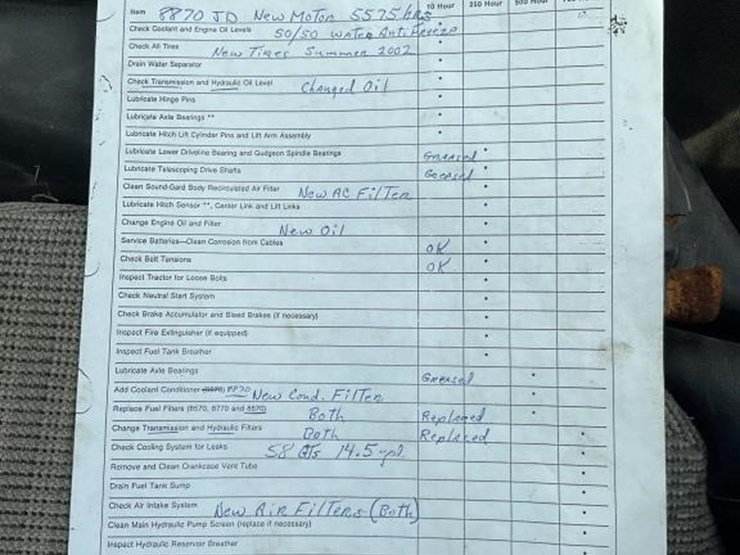 Item 8870 JD New Motor 5575 hrs 10 Hour 250 Hour 500 Hour
Check Coolant and Engine Oil Levels 50/50 water Anti Freeze
Check All Tires New Tires Summer 2002
Drain Water Separator
Check Transmission and Hydraulic Oil Level Changed Oil
Lubricate Hinge Pins
Lubricate Axle Bearings **
Lubricate Hitch Lift Cylinder Pins and Lift Arm Assembly
Lubricate Lower Driveline Bearing and Gudgeon Spindle Bearings Greased
Lubricate Telescoping Drive Shafts Greased
Clean Sound-Gard Body Recirculated Air Filter New AC Filter
Lubricate Hitch Sensor **, Center Link and Lift Links
Change Engine Oil and Filter New Oil
Service Batteries—Clean Corrosion from Cables OK
Check Belt Tensions OK
Inspect Tractor for Loose Bolts
Check Neutral Start System
Check Brake Accumulator and Bleed Brakes (if necessary)
Inspect Fire Extinguisher (if equipped)
Inspect Fuel Tank Breather
Lubricate Axle Bearings Greased
Add Coolant Conditioner (8570) 8870 New Cond. Filter
Replace Fuel Filters (8570, 8770 and 8870) Both Replaced
Change Transmission and Hydraulic Filters Both Replaced
Check Cooling System for Leaks 58 QTs 14.5 gal
Remove and Clean Crankcase Vent Tube
Drain Fuel Tank Sump
Check Air Intake System New Air Filters (Both)
Clean Main Hydraulic Pump Screen (replace if necessary)
Inspect Hydraulic Reservoir Breather